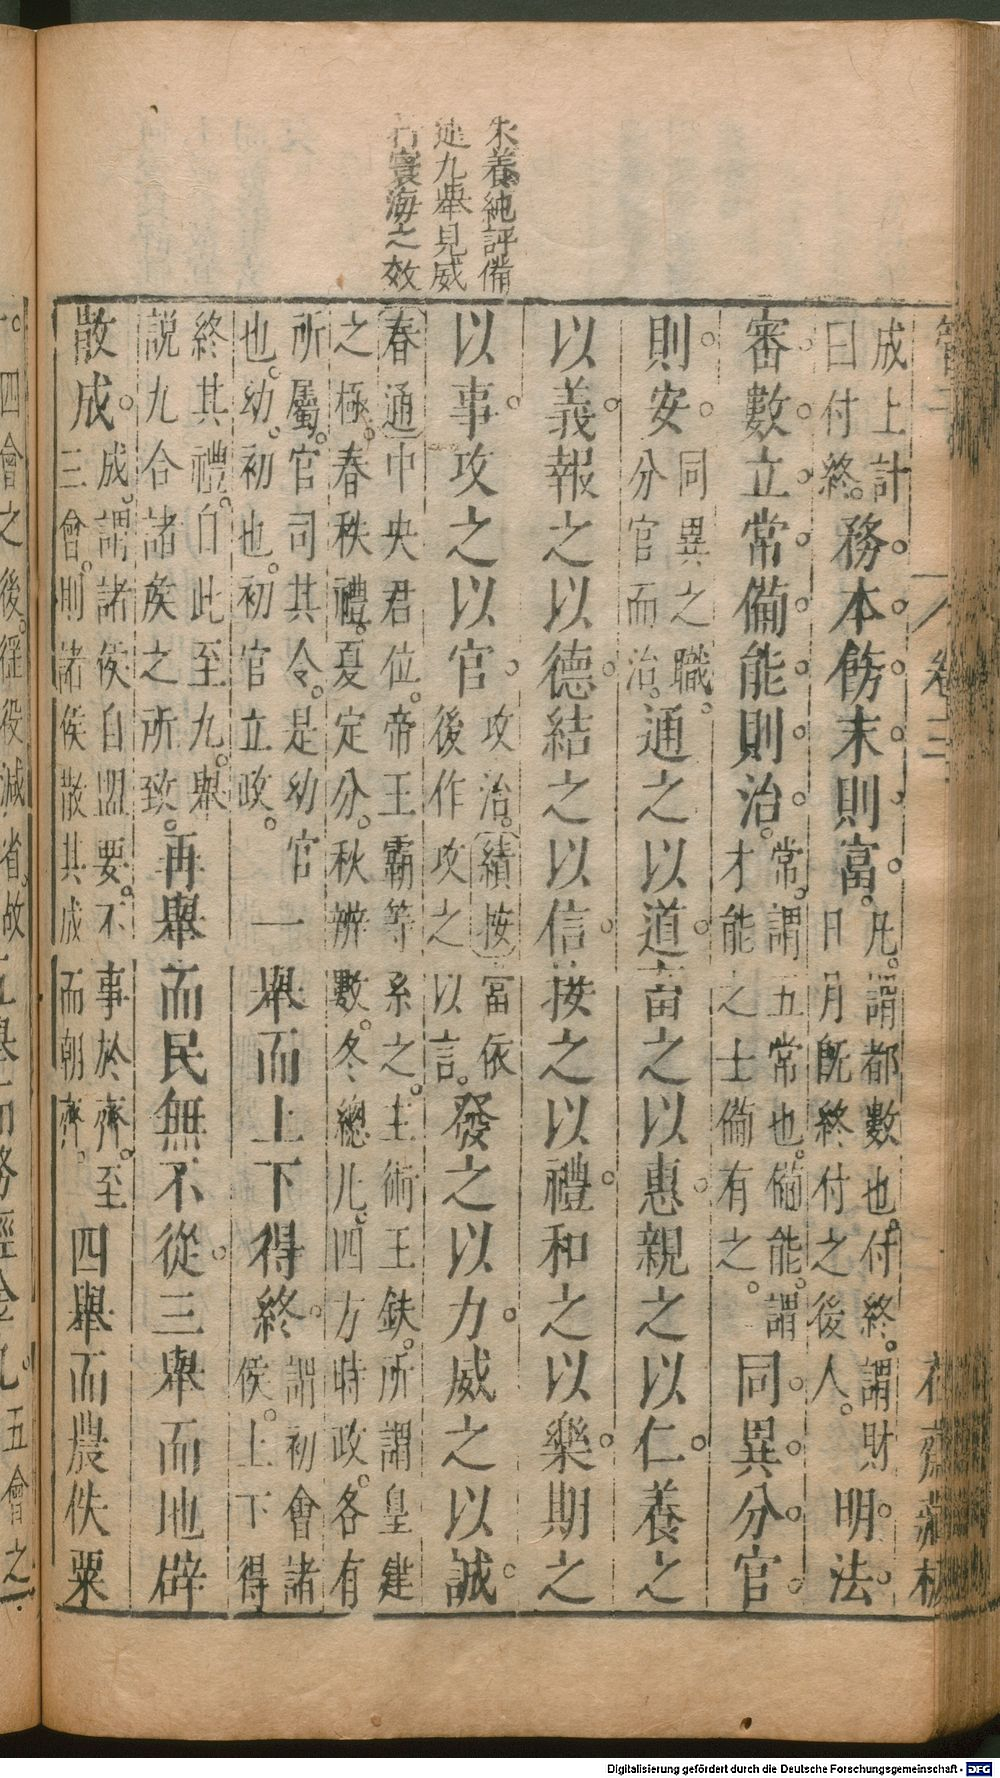 朱養純評備
延九舉見威
行寰海之效
管子
卷三
花齋藏板
成上計
曰付終。務。本。飭。末。則。富。凡。謂都數也。付終。謂財
日月既終付之後人。明。法。
審。數。立。常。備。能。則。治。常。謂五常也。備能。謂
才能之士備有之。同。異。分。官
則。安。同異之職。
分官而治。通之以道。畜之以惠。親之以仁。養之
以義。報之以德。結之以信。接之以禮。和之以樂。期之
以事。攻之以官。攻治。績按當依
後作攻之以言。發之以力。威之以誠。
春通中央君位。帝王霸等系之。主術王鈇。所謂皇建
之極。春秩禮。夏定分。秋辨數。冬總凡。四方時政。各有
所屬。官司其令。是幼官
也。幼。初也。初官立政。一舉而上下得終。謂初會諸
侯。上下得
終其禮。自此至九舉
說九合諸侯之所致。再舉而民無不從。三舉而地辟
散成。成。謂諸侯自盟要。不事於齊。至
三會。則諸侯散其成而朝齊。四舉而農佚粟
四會之後。徑役減省。故
五會之